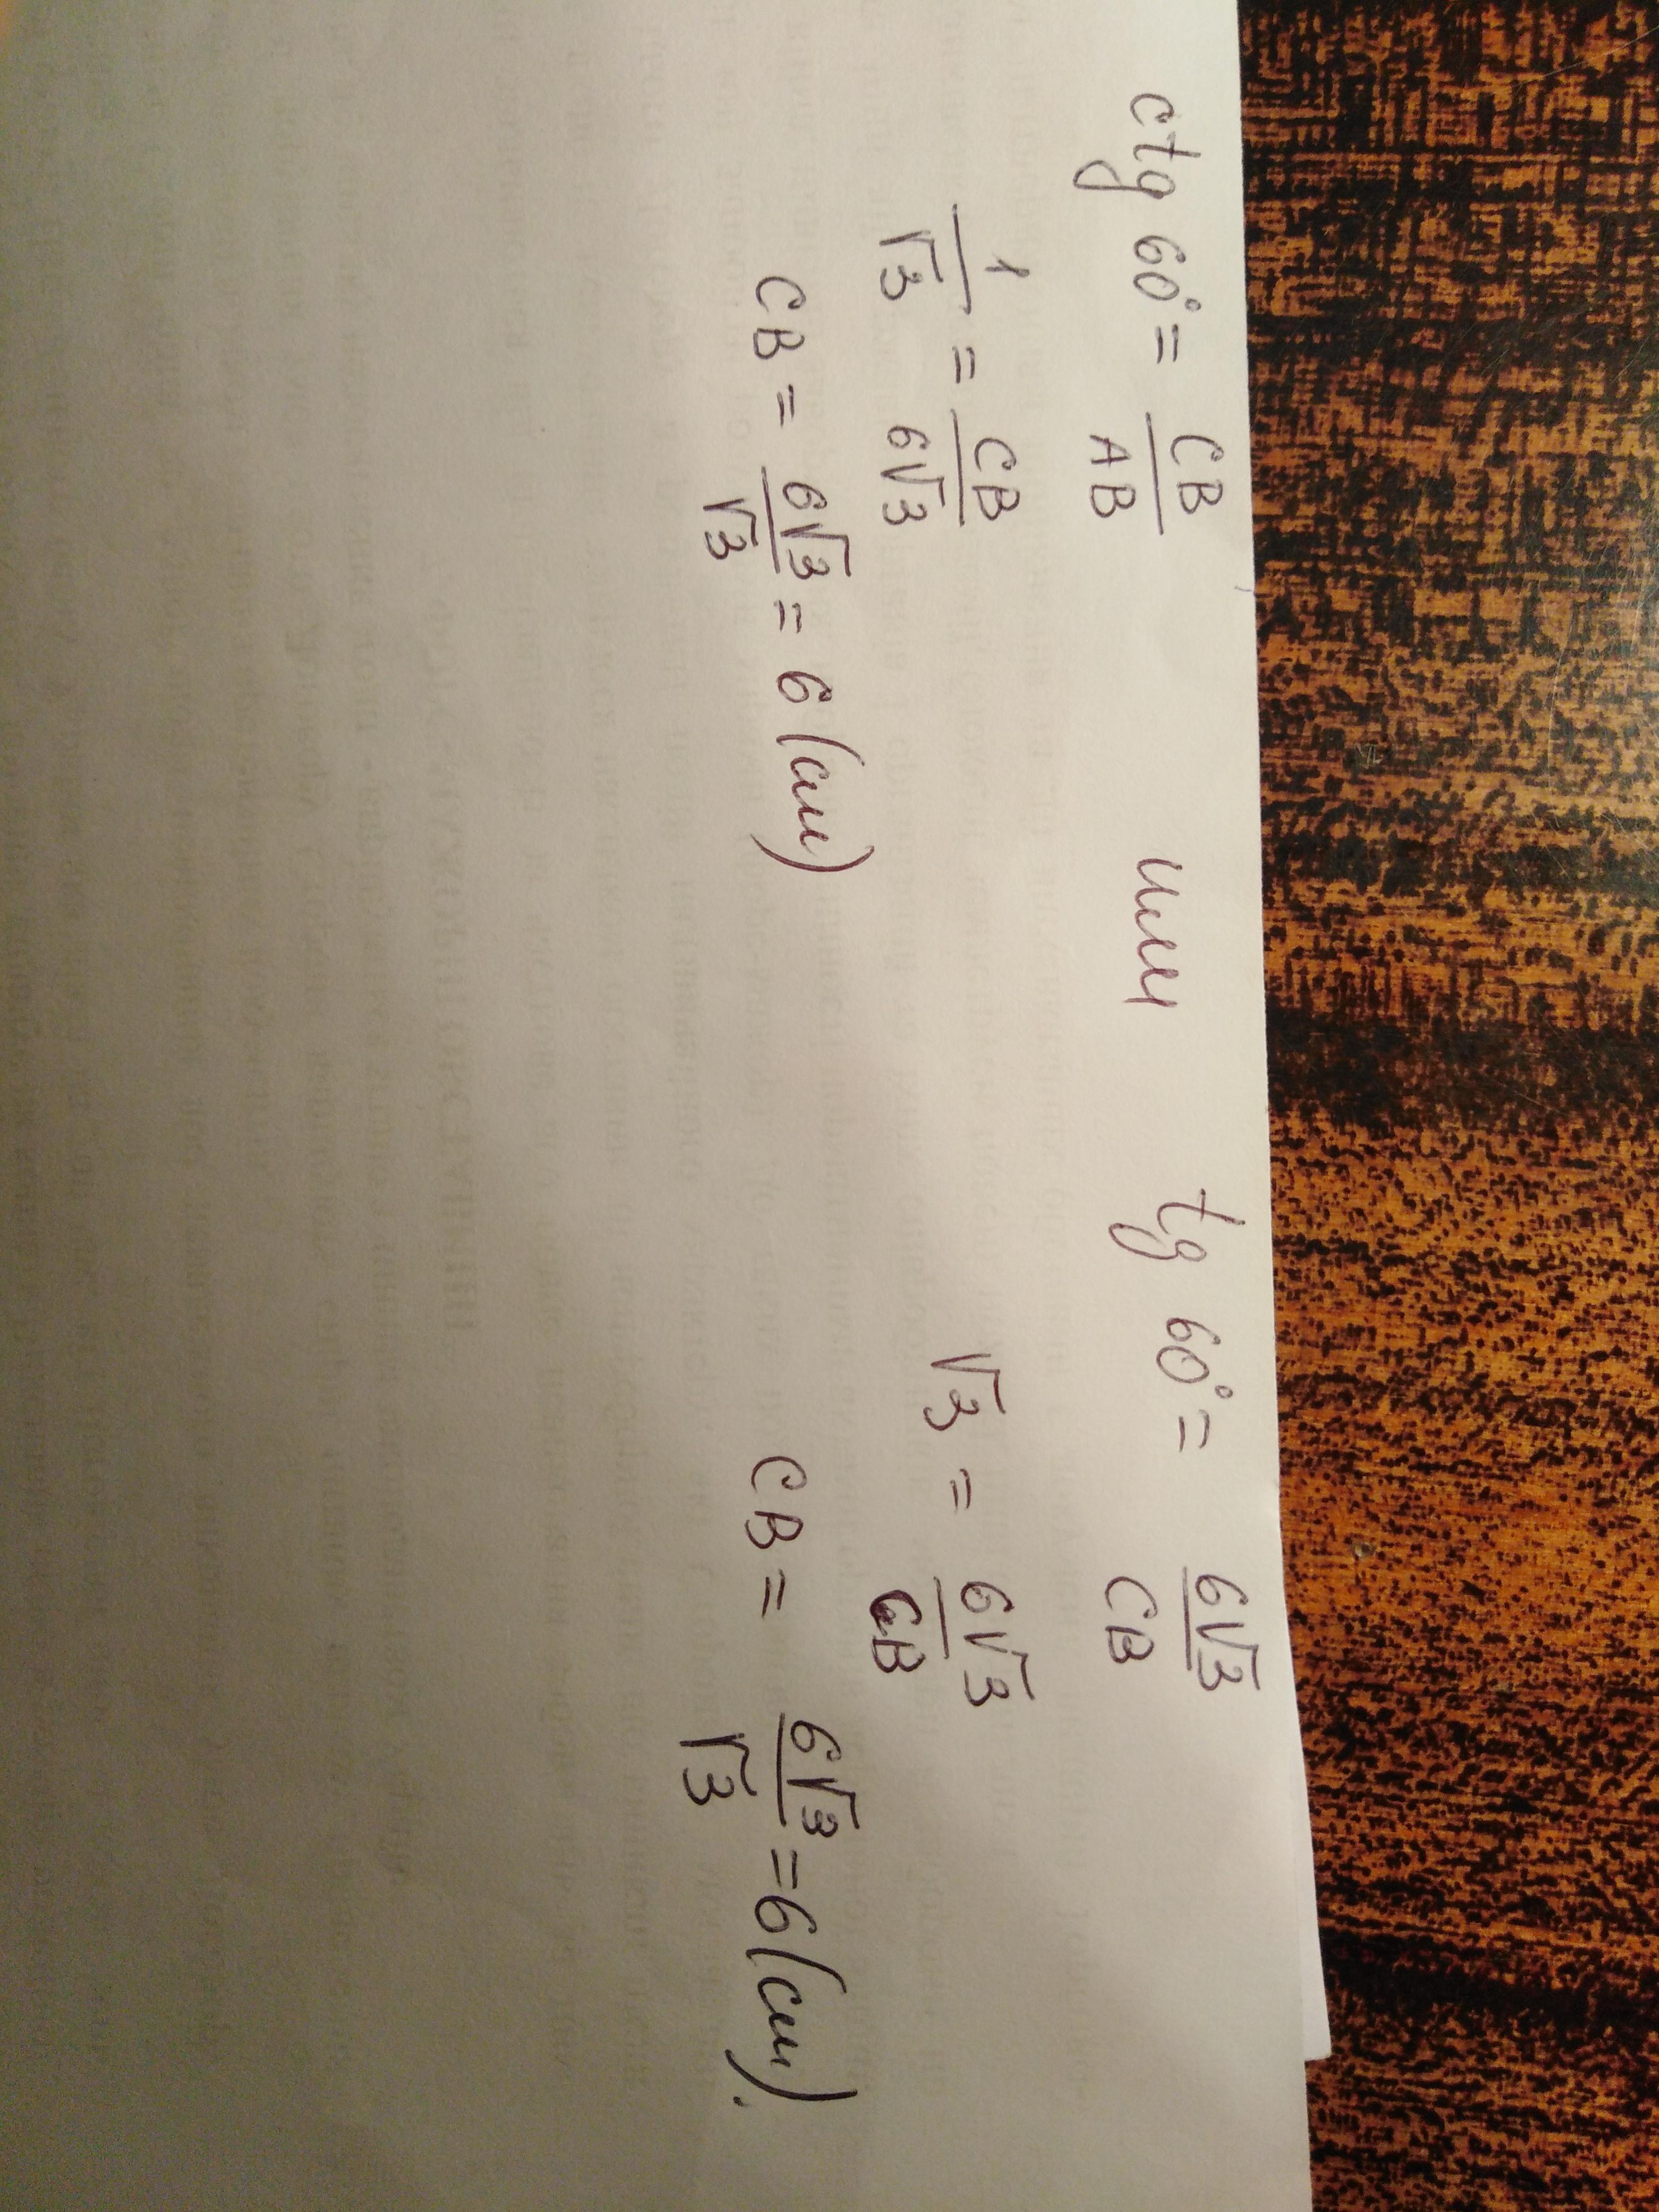 ctg 60° = CB/AB или tg 60° = 6√3/CB
1/√3 = CB/6√3 √3 = 6√3/CB
CB = 6√3/√3 = 6 (см) CB = 6√3/√3 = 6 (см).